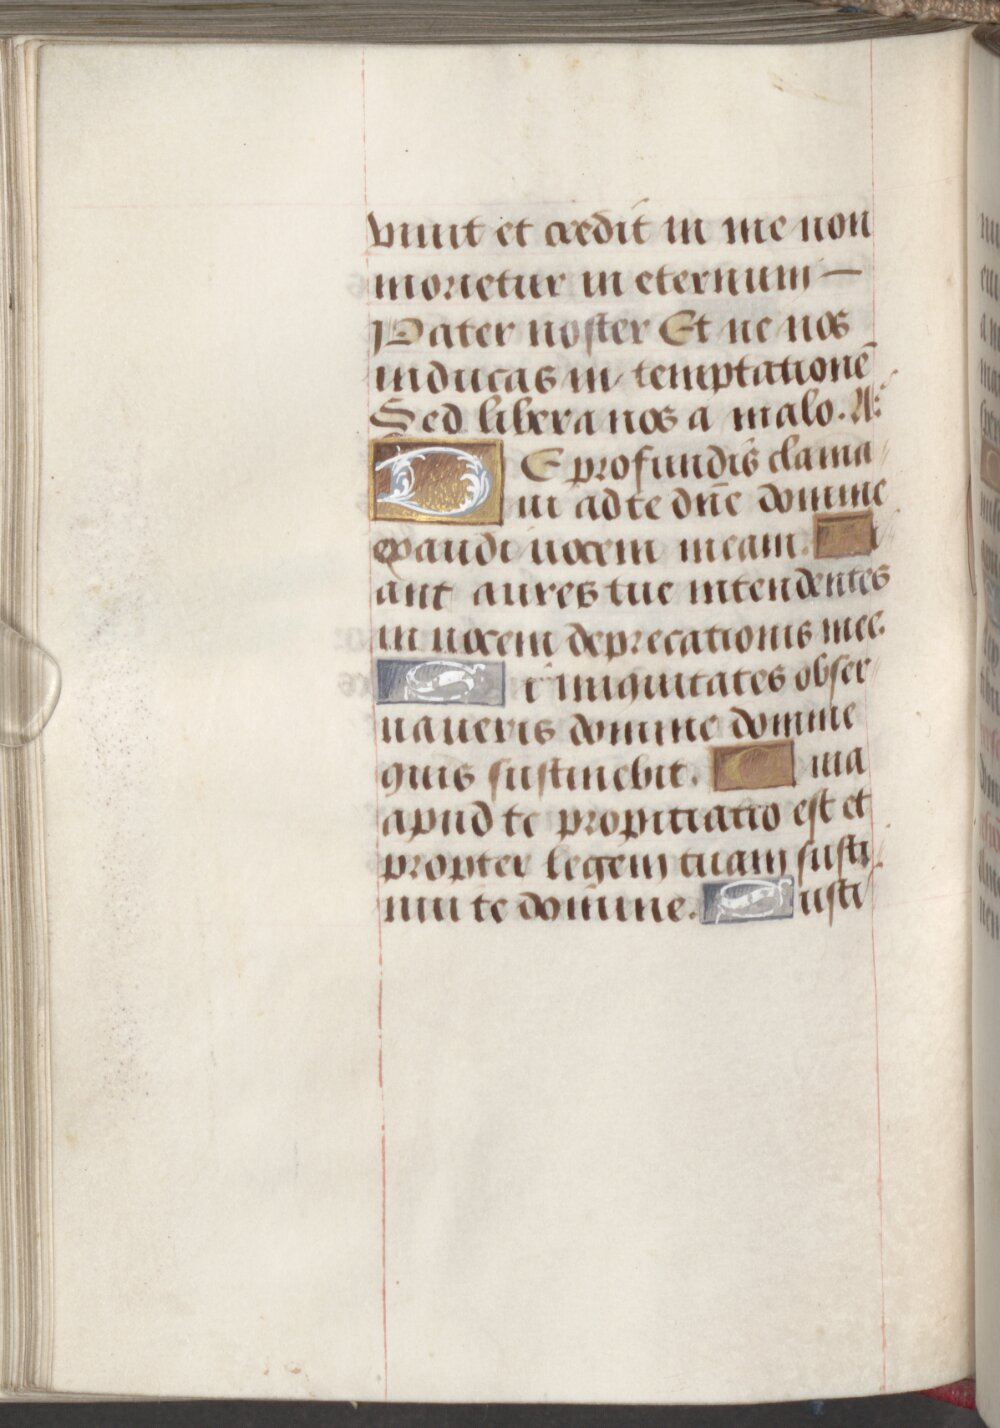 viuit et credit in me non
morietur in eternum —
Pater noster Et ne nos
inducas in temptationē
Sed libera nos a malo. A:
DE profundis clama
ui ad te dn̄e domine
exaudi uocem meam. Fi
ant aures tue intendentes
in uocem deprecationis mee.
Si iniquitates obser
uaueris domine domine
quis sustinebit. Quia
apud te propitiatio est et
propter legem tuam susti
nui te domine. Susti